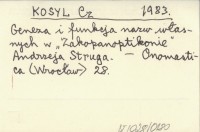 KOSYL Cz 1983.
Geneza i funkcja nazw włas-
nych w "Zakopanoptikonie"
Andrzeja Struga. — Onomasti-
ca (Wrocław) 28.